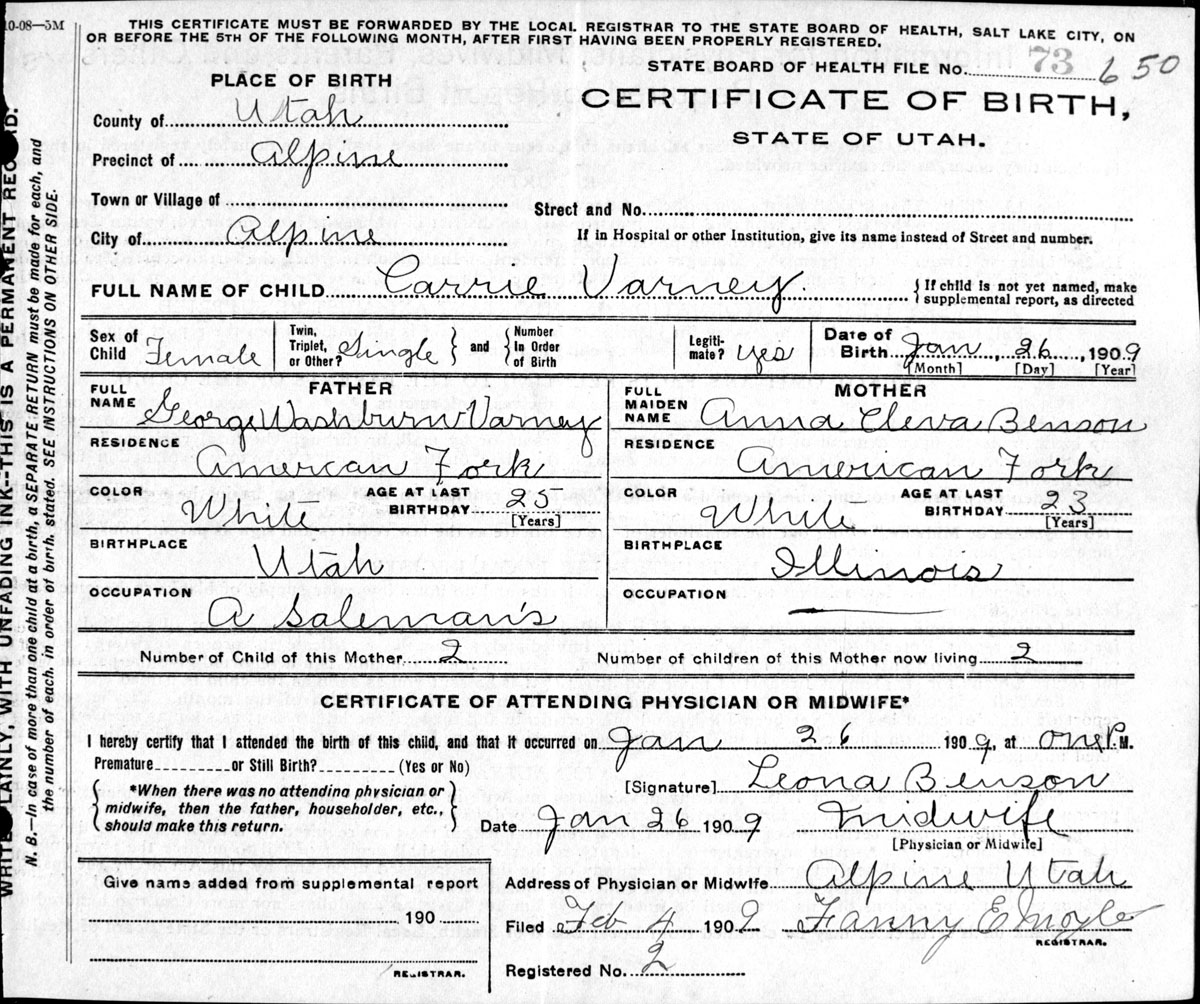 10-08—5M
THIS CERTIFICATE MUST BE FORWARDED BY THE LOCAL REGISTRAR TO THE STATE BOARD OF HEALTH, SALT LAKE CITY, ON
OR BEFORE THE 5TH OF THE FOLLOWING MONTH, AFTER FIRST HAVING BEEN PROPERLY REGISTERED.
STATE BOARD OF HEALTH FILE No. 73 650
CERTIFICATE OF BIRTH,
STATE OF UTAH.
PLACE OF BIRTH
County of Utah
Precinct of Alpine
Town or Village of
Street and No.
City of Alpine
If in Hospital or other Institution, give its name instead of Street and number.
FULL NAME OF CHILD Carrie Varney {If child is not yet named, make
supplemental report, as directed
Sex of Child Female
Twin, Triplet, or Other? Single } and { Number In Order of Birth
Legiti-mate? yes
Date of Birth Jan, 26, 1909
[Month] [Day] [Year]
FATHER
FULL NAME George Washburn Varney
RESIDENCE
Amercan Fork
COLOR White AGE AT LAST BIRTHDAY 25
[Years]
BIRTHPLACE
Utah
OCCUPATION
A Saleman's
MOTHER
FULL MAIDEN NAME Anna Cleva Benson
RESIDENCE
American Fork
COLOR White AGE AT LAST BIRTHDAY 23
[Years]
BIRTHPLACE
Illinois
OCCUPATION
Number of Child of this Mother 2 Number of children of this Mother now living 2
CERTIFICATE OF ATTENDING PHYSICIAN OR MIDWIFE*
I hereby certify that I attended the birth of this child, and that it occurred on Jan 26 1909, at one P. M.
Premature or Still Birth? (Yes or No)
{*When there was no attending physician or
midwife, then the father, householder, etc.,
should make this return.}
[Signature] Leona Benson
Date Jan 26 1909 Midwife
[Physician or Midwife]
Give name added from supplemental report
190
REGISTRAR.
Address of Physician or Midwife Alpine Utah
Filed Feb 4 1909 Fanny E Moyle
REGISTRAR.
Registered No. 2
WRITE PLAINLY, WITH UNFADING INK--THIS IS A PERMANENT RECORD.
N. B.—In case of more than one child at a birth, a SEPARATE RETURN must be made for each, and
the number of each, in order of birth, stated. SEE INSTRUCTIONS ON OTHER SIDE.